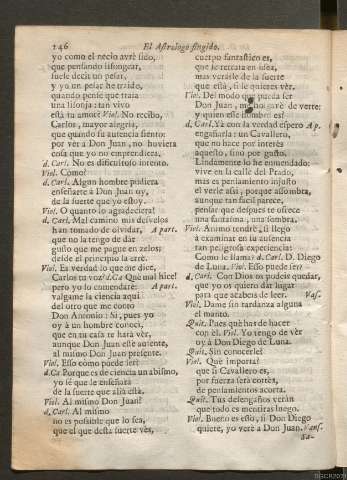 146
El Astrologo fingido.
yo como el necio avrè sido,
que pensando lisongear,
suele dezir un pesar,
y yo un pesar he traido,
quando pensè que traìa
una lisonja: tan vivo
està tu amor? Viol. No recibo,
Carlos, mayor alegria,
que quando su autencia siento:
por vèr à Don Juan, no huviera
cosa que yo no emprendiera.
d. Carl. No es dificultoso intento.
Viol. Còmo?
d. Carl. Algun hombre pudiera
enseñarte à Don Juan oy,
de la suerte que yo estoy.
Viol. O quanto lo agradeciera!
d. Carl. Mal camino mis desvelos
han tomado de olvidar, A part.
que no la tengo de dàr
gusto que me pague en zelos;
desde el principio la errè.
Viol. Es verdad lo que me dice,
Carlos tu voz? d. Ca. Què mal hice!
pero yo lo comendarè: A part.
valgame la ciencia aqui
del otro que me conto
Don Antonio: Sì, pues yo
oy à un hombre conoci,
que en tu casa te harà vèr,
aunque Don Juan estè ausente,
al mismo Don Juan presente.
Viol. Esso còmo puede ser?
d. Cr. Porque es de ciencia un abismo,
yo sè que le enseñarà
de la suerte que allà està.
Viol. Al mismo Don Juan?
d. Carl. Al mismo
no es possible que lo sea,
que el que desta suerte vès,
cuerpo fantastico es,
que le retrata en idea,
mas veràsle de la suerte
que està, si le quieres vèr.
Viol. Del modo que pueda ser
Don Juan, me holgarè de verte:
y quien esse hombre es?
d. Carl. Yà con la verdad espero A p.
engañarla: un Cavallero,
que no hace por interès
aquesto, sino por gusto.
Lindamente lo he enmendado;
vive en la calle del Prado,
mas es pensamiento injusto
el verle assi, porque assombra,
aunque tan facil parece,
pensar que despues te ofrece
una fantasma, una sombra.
Viol. Animo tendrè, si llego
à examinar en su ausencia
tan peligrosa experiencia:
Como se llama? d. Carl. D. Diego
de Luna. Viol. Esso puede ser?
d. Carl. Con Dios os podeis quedar,
que yo os quiero dàr lugar
para que acabeis de leer. Vas.
Viol. Dame sin tardanza alguna
el manto.
Quit. Pues què has de hacer
con èl. Viol. Yo tengo de vèr
oy à Don Diego de Luna.
Quit. Sin conocerle?
Viol. Què importa?
que si Cavallero es,
por fuerza serà cortès,
de pensamientos acorta.
Quit. Tus desengaños veràn
que todo es mentiras luego.
Viol. Bueno es esto, si Don Diego
quiere, yo verè à Don Juan. Vans.
Sa-